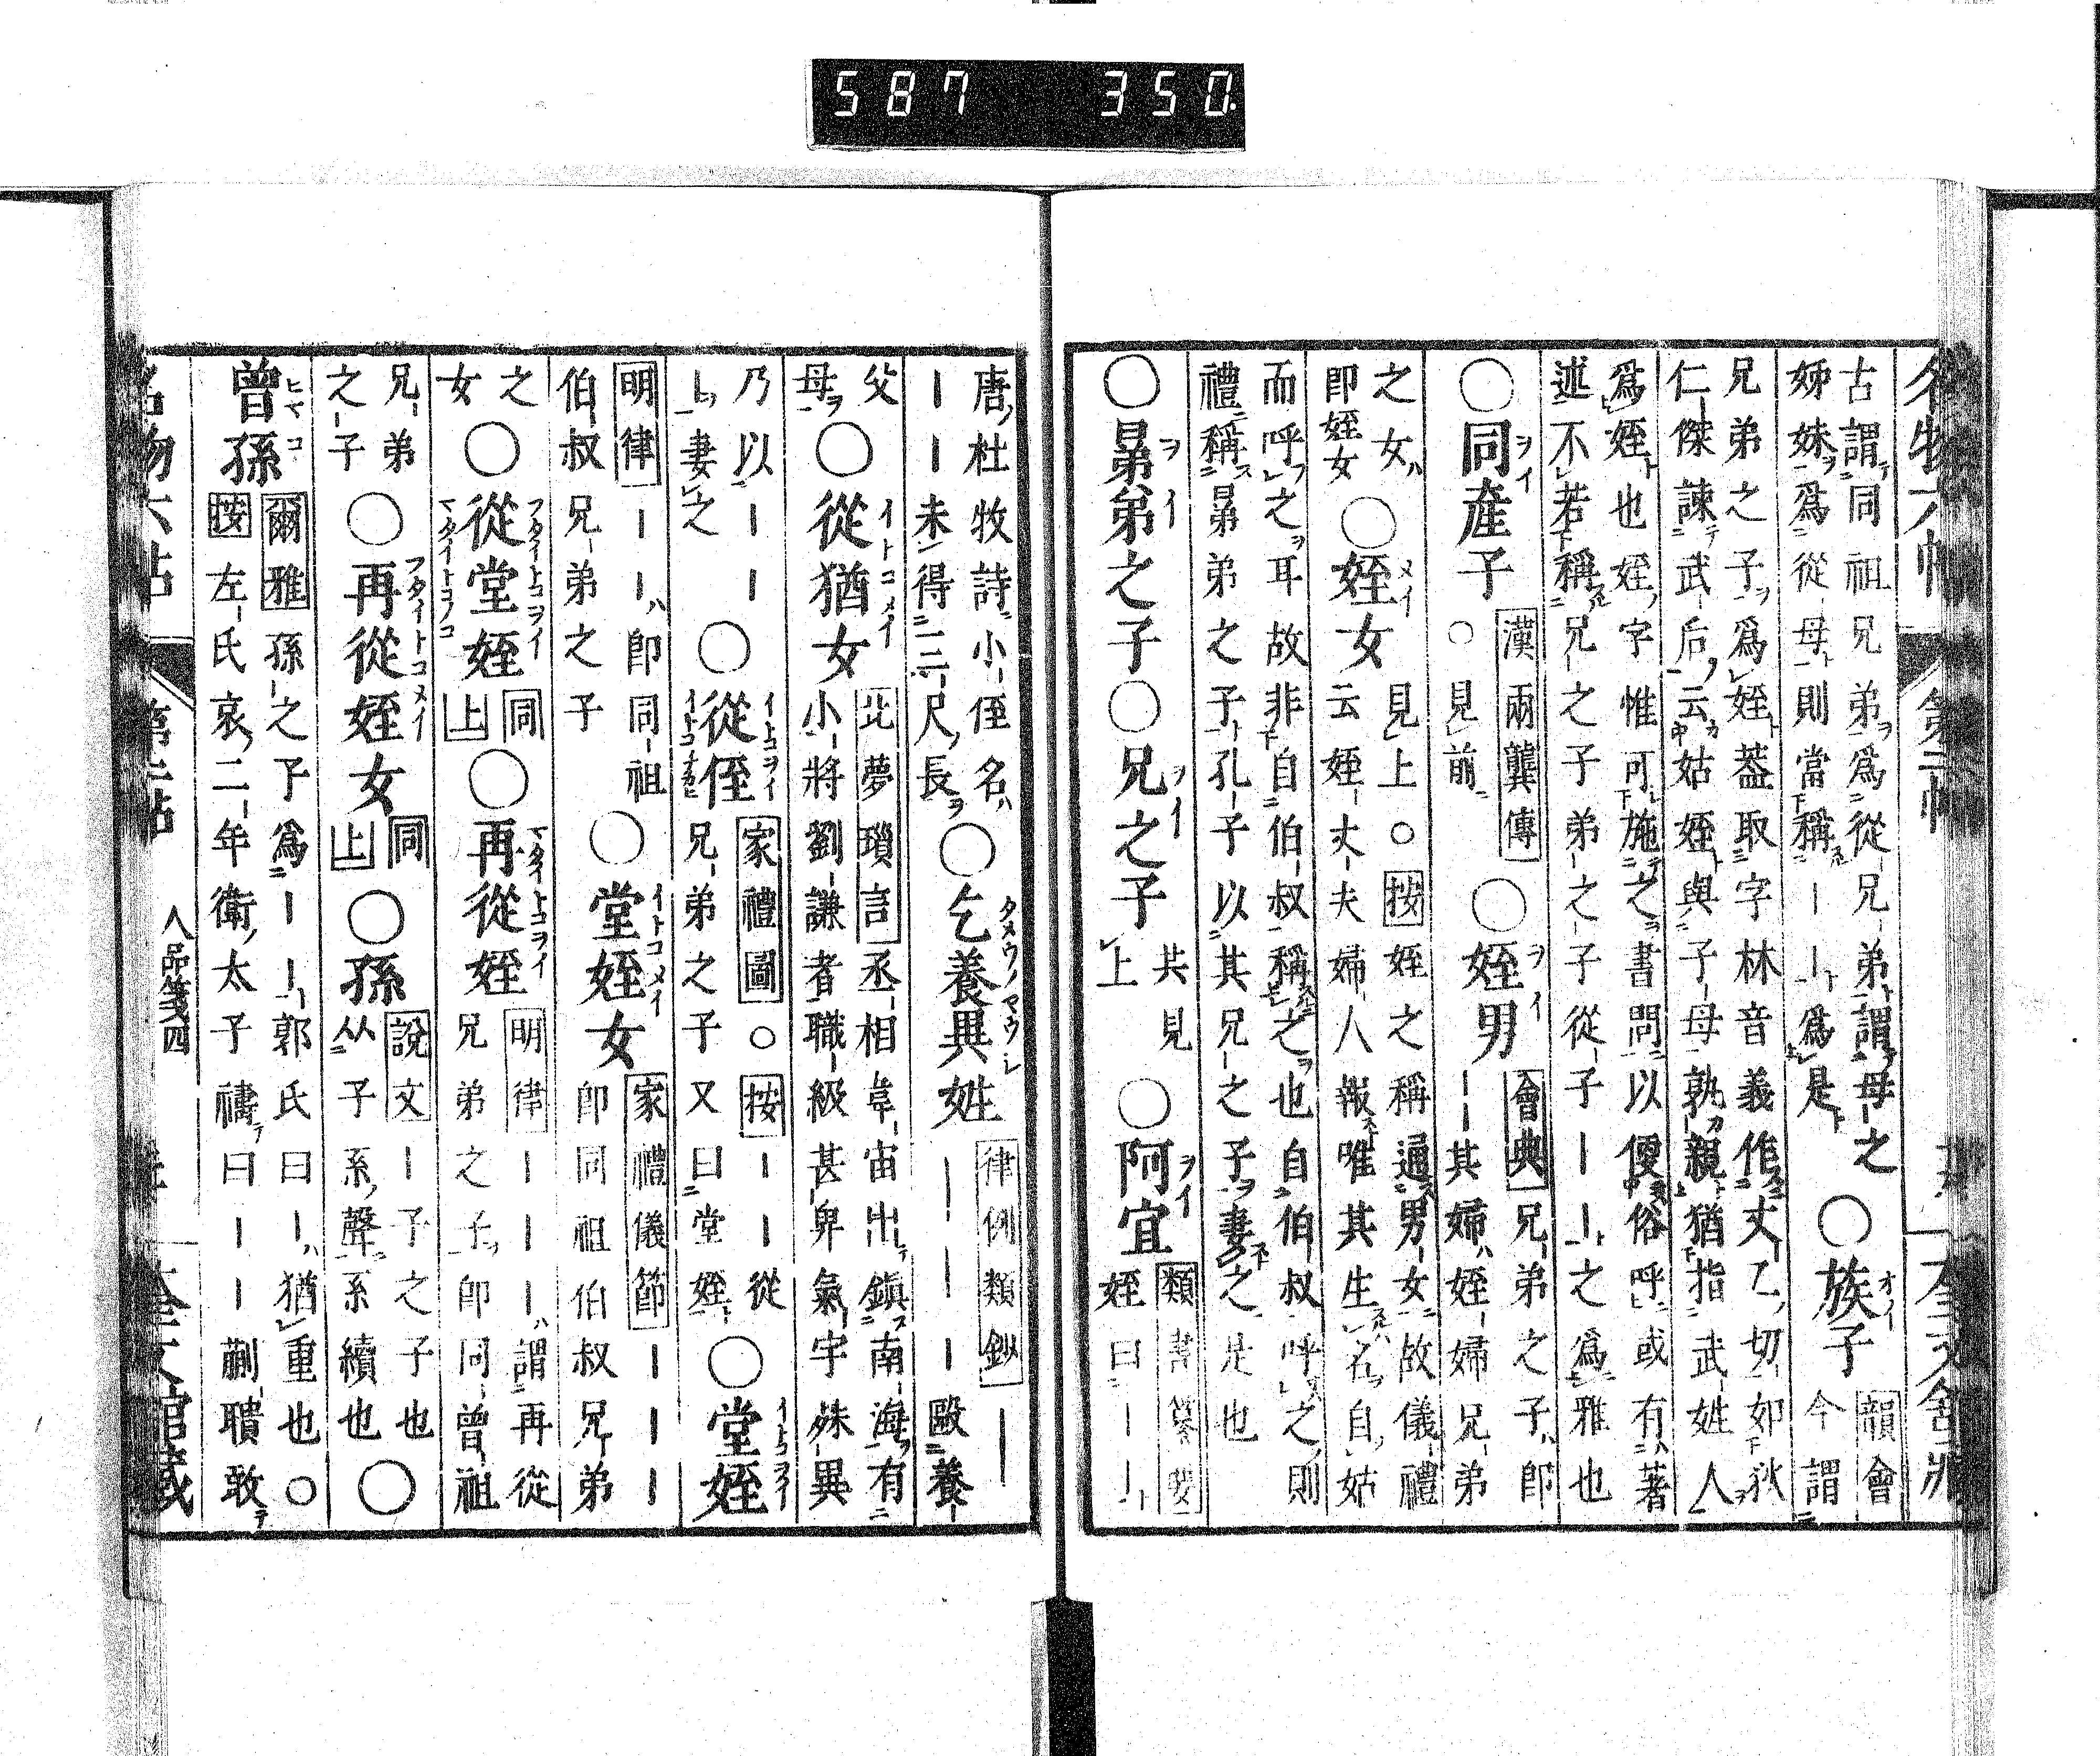 587 350
古謂同祖兄弟爲從兄弟謂母之
姊妹爲從母則當稱——爲是
○族子
韻會
今謂
兄弟之子爲姪葢取字林音義作丈乙切如狄
仁傑諫武后云姑姪與子母孰親猶指武姓人
爲姪也姪字惟可施之書問以便俗呼或有著
述不若稱兄之子弟之子從子——之爲雅也
○同産子
漢兩龔傳
○見前
○姪男
會典兄弟之子卽
——其婦姪婦兄弟
之女
卽姪女
○姪女
見上○按姪之稱通男女故儀禮
云姪丈夫婦人報唯其生名自姑
而呼之耳故非自伯叔稱之也自伯叔呼之則
禮稱昆弟之子孔子以其兄之子妻之是也
○昆弟之子○兄之子
共見
上
○阿宜
類書
姪曰——
唐杜牧詩小侄名
——未得三尺長
○乞養異姓
律例類鈔—
————毆養
父
母
○從猶女
北夢瑣言丞相韋宙出鎮南海有
小將劉謙者職級甚卑氣宇殊異
乃以——
—妻之
○從侄
家禮圖○按——從
兄弟之子又曰堂姪
○堂姪
明律——卽同祖
伯叔兄弟之子
○堂姪女
家禮儀節———
卽同祖伯叔兄弟
之
女
○從堂姪
同
上
○再從姪
明律———謂再從
兄弟之子卽同曾祖
兄弟
之子
○再從姪女
同
上
○孫
說文—子之子也
从子系聲系續也
○
曾孫
爾雅孫之子爲——郭氏曰—猶重也○
按左氏哀二年衛太子禱曰——蒯聵敢
名物六帖
第二帖
人品箋四